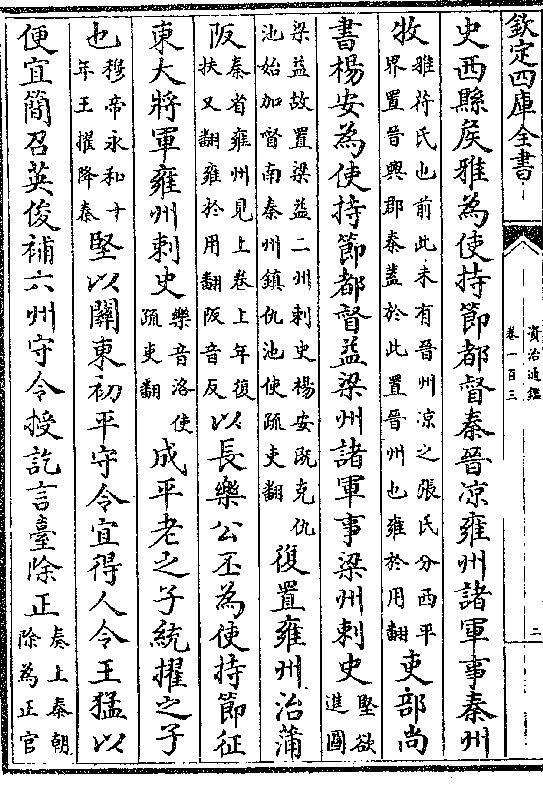 欽定四庫全書
資治通鑑
卷一百三
二
史西縣矦雅為使持節都督秦晉凉雍州諸軍事秦州
牧雅苻氏也前此未有晉州凉之張氏分西平界置晉興郡秦蓋於此置晉州也雍於用翻吏部尚
書楊安為使持節都督益梁州諸軍事梁州刺史堅欲進圖
梁益故置梁益二州刺史楊安既克仇池始加督南秦州鎮仇池使疏吏翻復置雍州治蒲
阪秦省雍州見上卷上年復扶又翻雍於用翻阪音反以長樂公丕為使持節征
東大將軍雍州刺史樂音洛使疏吏翻成平老之子統擢之子
也穆帝永和十年王擢降秦堅以關東初平守令宜得人令王猛以
便宜簡召英俊補六州守令授訖言臺除正奏上秦朝除為正官